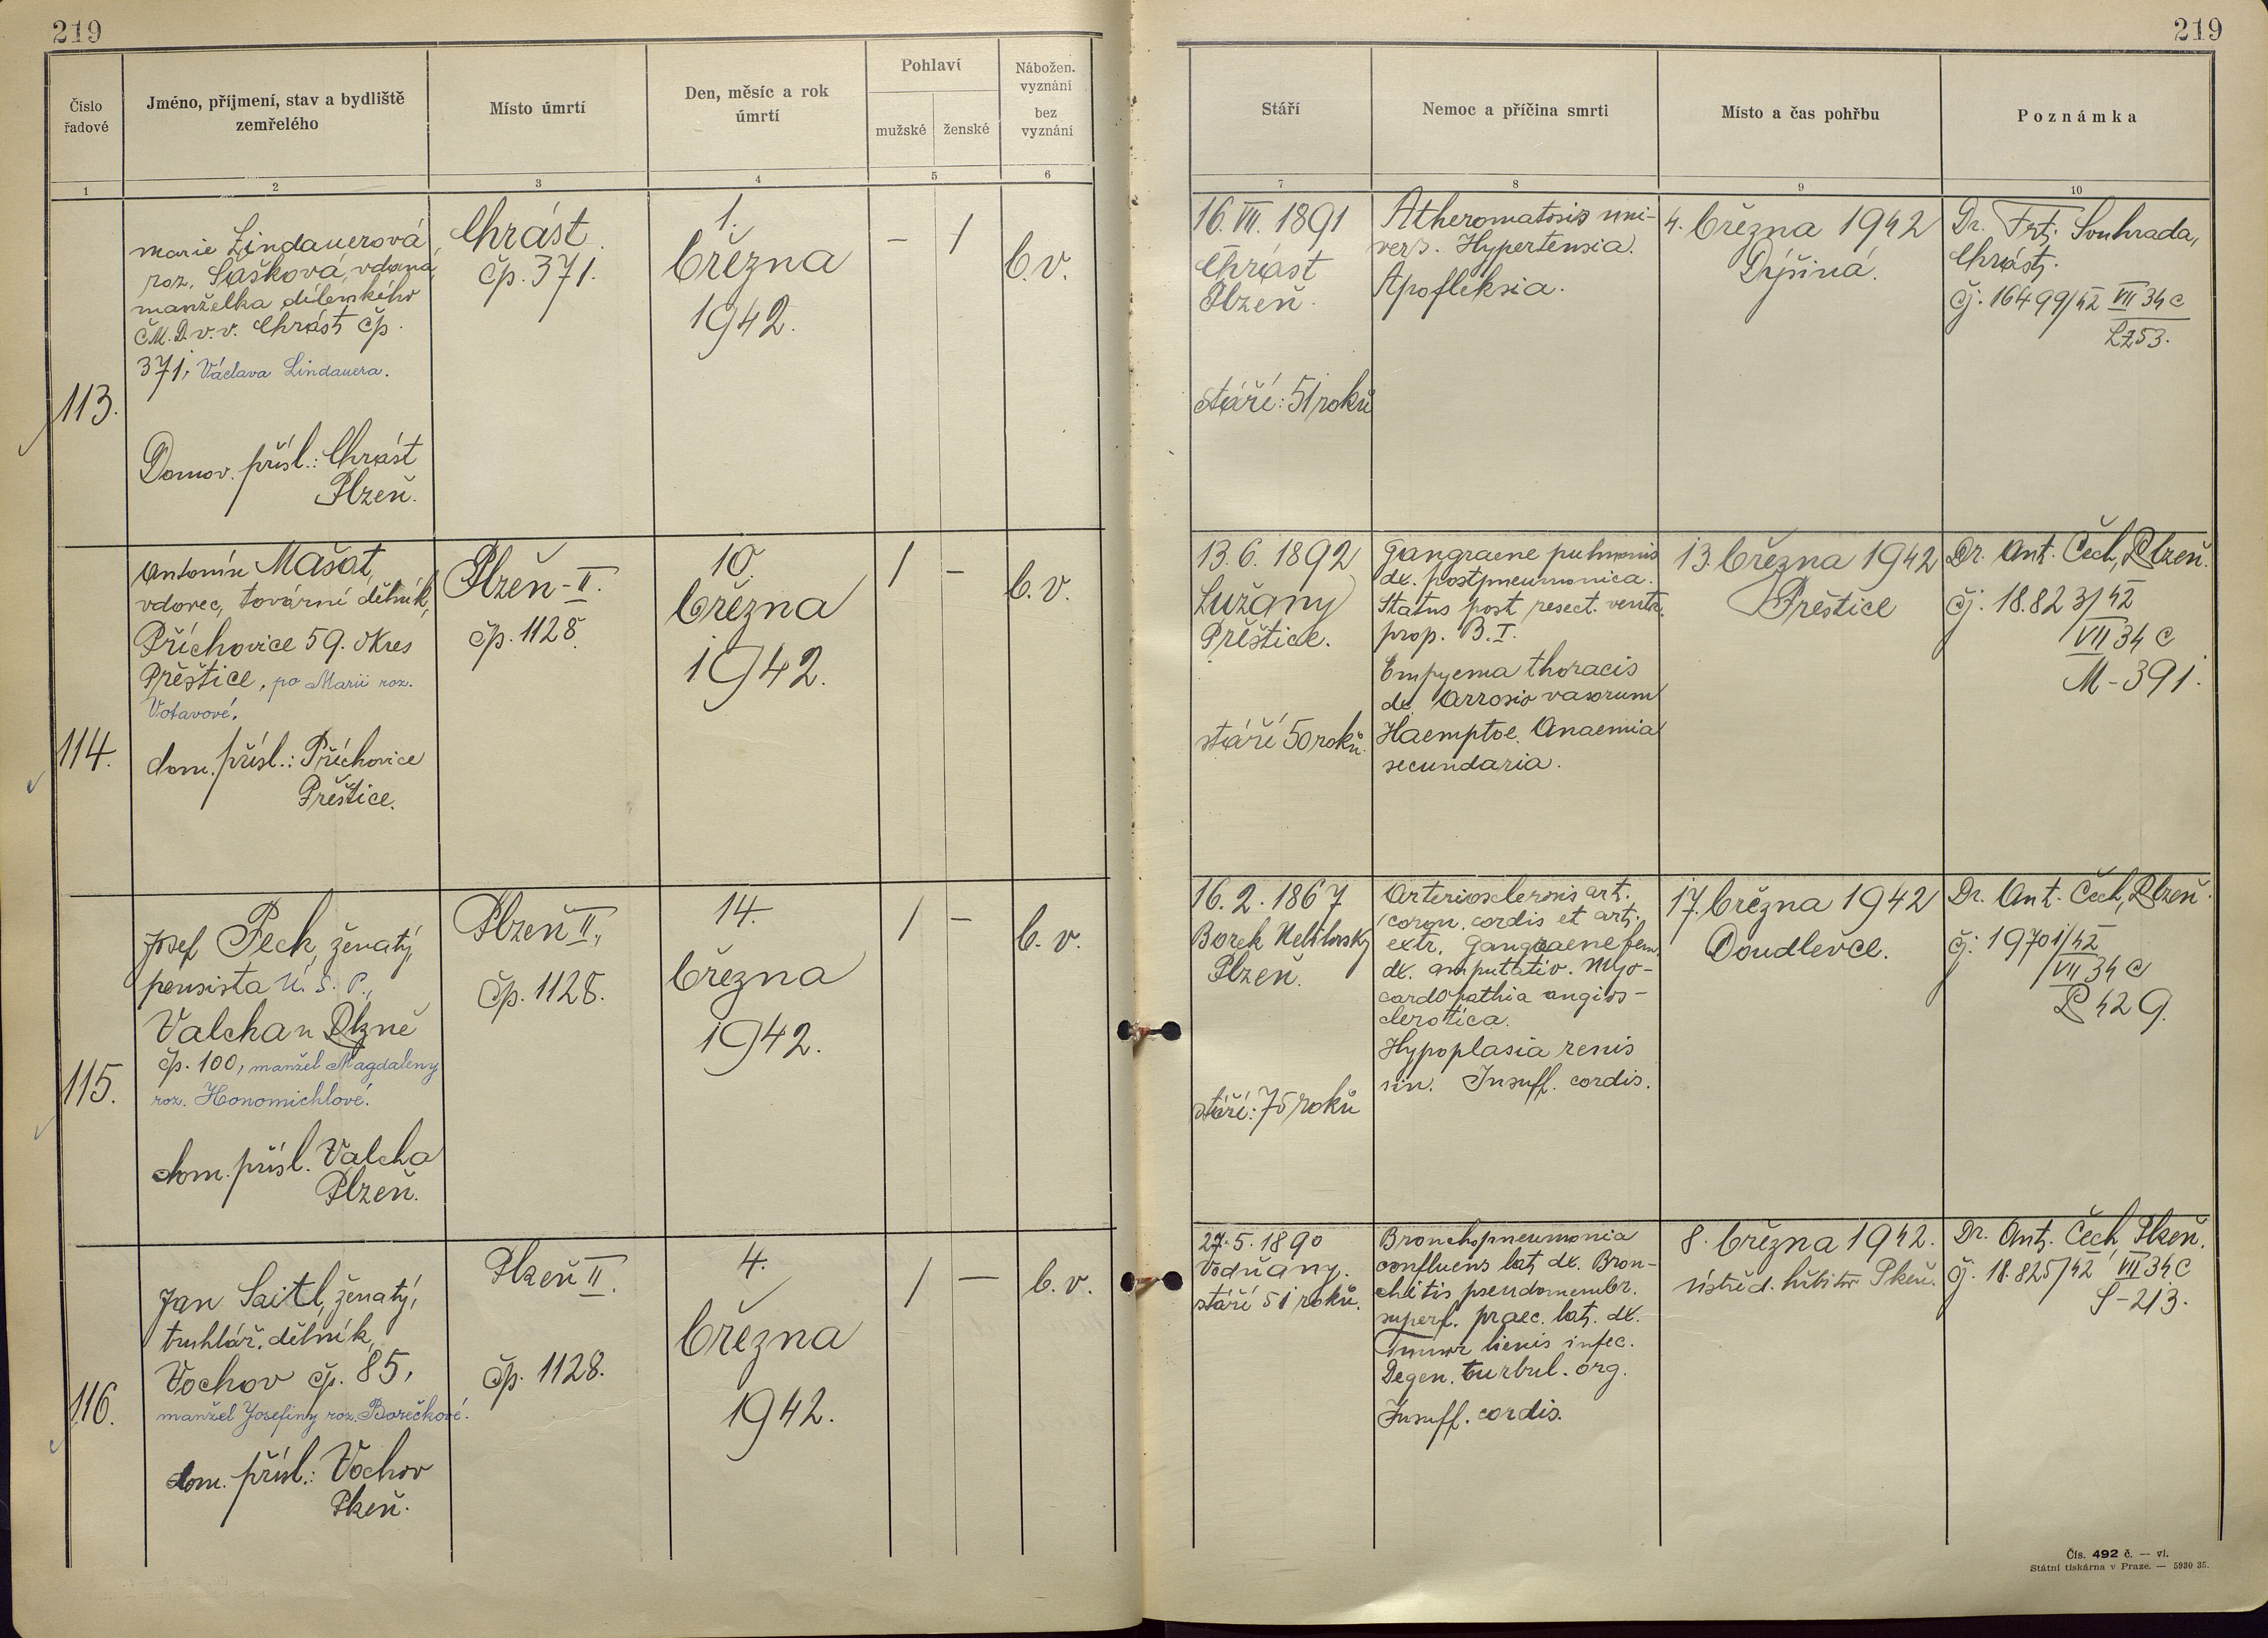 219
219
Číslo
řadové
Jméno, příjmení, stav a bydliště
zemřelého
Místo úmrtí
Den, měsíc a rok
úmrtí
Pohlaví
mužské
ženské
Nábožen.
vyznání
bez
vyznání
Stáří
Nemoc a příčina smrti
Místo a čas pohřbu
Poznámka
1
2
3
4
5
6
7
8
9
10
113.
Marie Lindauerová,
roz. Sašková, vdaná,
manželka dílenského
ČM.D. v. v. Chrást čp.
371, Václava Lindauera.
Domov. přísl.: Chrást
Plzeň.
Chrást
čp. 371.
1.
března
1942.
–
/
b.v.
16. VII. 1891
Chrást
Plzeň.
stáří: 51 roků
Atheromatosis uni-
vers. Hypertensia.
Apopleksia.
4. března 1942
Dýšiná.
Dr. Frt. Souhrada,
Chrást.
čj. 16499/42 VII 34 c
Lz53.
114.
Antonín Mašat,
vdovec, tovární dělník,
Příchovice 59. okres
Přeštice, po Marii roz.
Votavové.
dom. přísl.: Příchovice
Přeštice.
Plzeň-II.
čp. 1128.
10.
března
1942.
/
–
b.v.
13. 6. 1892
Lužany
Přeštice.
stáří 50 roků.
Gangraene pulmonis
dx. postpneumonica.
Status post resect. ventr.
prop. B.I.
Empyema thoracis
dx. Arrosio vasorum
Haemptoe. Anaemia
secundaria.
13. března 1942
Přeštice
Dr. Ant. Čech, Plzeň.
čj. 18.823/42
VII 34 c
M-391.
115.
Josef Pech, ženatý,
pensista Ú. S. P.,
Valcha u Plzně
čp. 100, manžel Magdaleny
roz. Honomichlové.
dom. přísl. Valcha
Plzeň.
Plzeň II.,
čp. 1128.
14.
března
1942.
/
–
b. v.
16. 2. 1867
Borek
Plzeň.
stáří: 75 roků
Arteriosclerosis art.
coron. cordis et art.
extr. Gangraene fem.
dx. amputatio. Myo-
cardopathia angios-
clerotica.
Hypoplasia renis
sin. Insuff. cordis.
17. března 1942
Doudlevce.
Dr. Ant. Čech, Plzeň.
čj. 19701/42
VII 34 c
P 429.
116.
Jan Saitl, ženatý,
truhlář. dělník,
Vochov čp. 85,
manžel Josefiny roz. Borečkové.
dom. přísl.: Vochov
Plzeň.
Plzeň II.
čp. 1128.
4.
března
1942.
/
–
b. v.
27. 5. 1890
Vodňany.
stáří 51 roků.
Bronchopneumonia
confluens lat. dx. Bron-
chitis pseudomembr.
superf. praec. lat. dx.
Tumor lienis infec.
Degen. turbul. org.
Insuff. cordis.
8. března 1942.
ústřed. hřbitov Plzeň.
Dr. Ant. Čech Plzeň.
čj. 18.825/42 VII 34 C
S-213.
Čís. 492 č. — vl.
Státní tiskárna v Praze. — 5930 35.